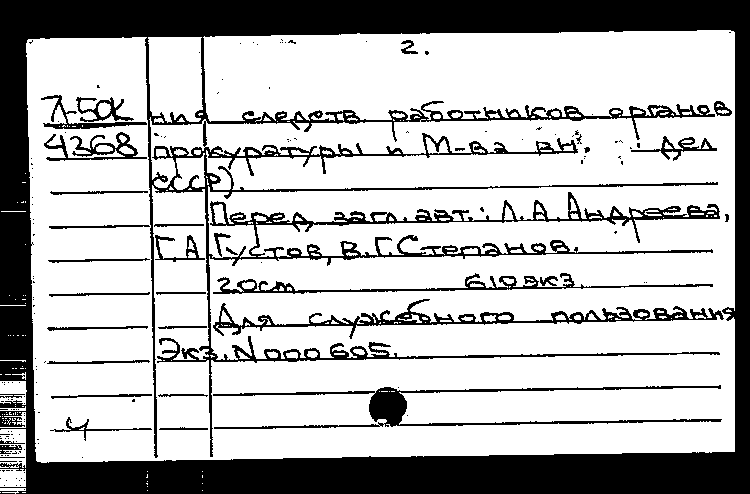 2.
Л-50К ния следств. работников органов
4368 прокуратуры и М-ва вн. дел
СССР).
Перед загл. авт.: Л.А.Андреева,
Г.А.Густов, В.Г.Степанов.
20см 610экз.
Для служебного пользования
Экз. N 000605.
4